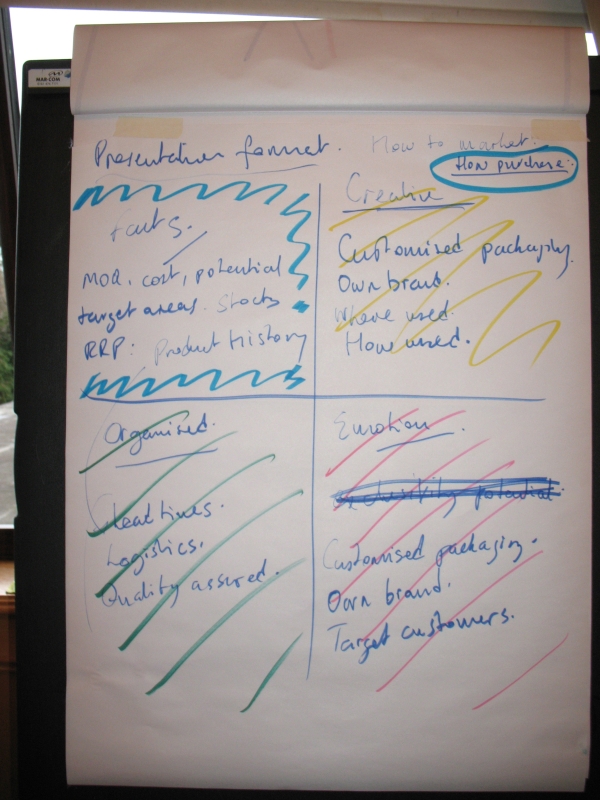 MAR-COM
Presentation format. How to market:
How purchase:
Facts.
MOQ, cost, potential
target areas. Stocks
RRP: Product History
Creative
Customised packaging.
Own brand.
Where used.
How used.
Organised.
Lead times.
Logistics.
Quality assured.
Emotion.
Exclusivity potential.
Customised packaging.
Own brand.
Target customers.